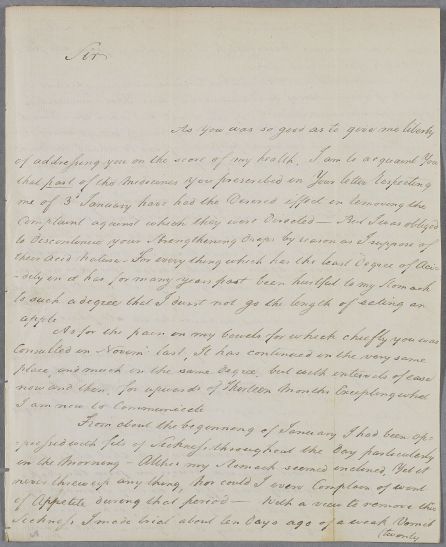 Sir
As you was so good as to give me liberty
of addressing you on the score of my health, I am to acquaint You
that part of the Medicines you prescribed in Your letter respecting
me of 3d January have had the Desired effect in removing the
Complaint against which they were Directed — But I was obliged
to Discontinue your Strengthening Drops by reason as I suppose of
their Acid Nature. For every thing which has the least Degree of Aci-
-dity in it has for many years past been hurtful to my Stomach
to such a degree that I durst not go the length of eating an
apple
As for the pain in my bowels for which chiefly you was
Consulted in Novemr. last, It has continued in the very same
place, and much in the same Degree, but with intervals of ease
now and then, for upwards of Thirteen Months Excepting what
I am now to Communicate
From about the beginning of January I had been op-
-pressed with fits of Sickness throughout the Day particularly
in the Morning — Altho' my Stomach seemed inclined, Yet it
never threw up any thing, nor could I ever Complain of want
of Appetite during that period — With a view to remove this
Sickness I made trial about ten Days ago of a weak Vomit
(twenty